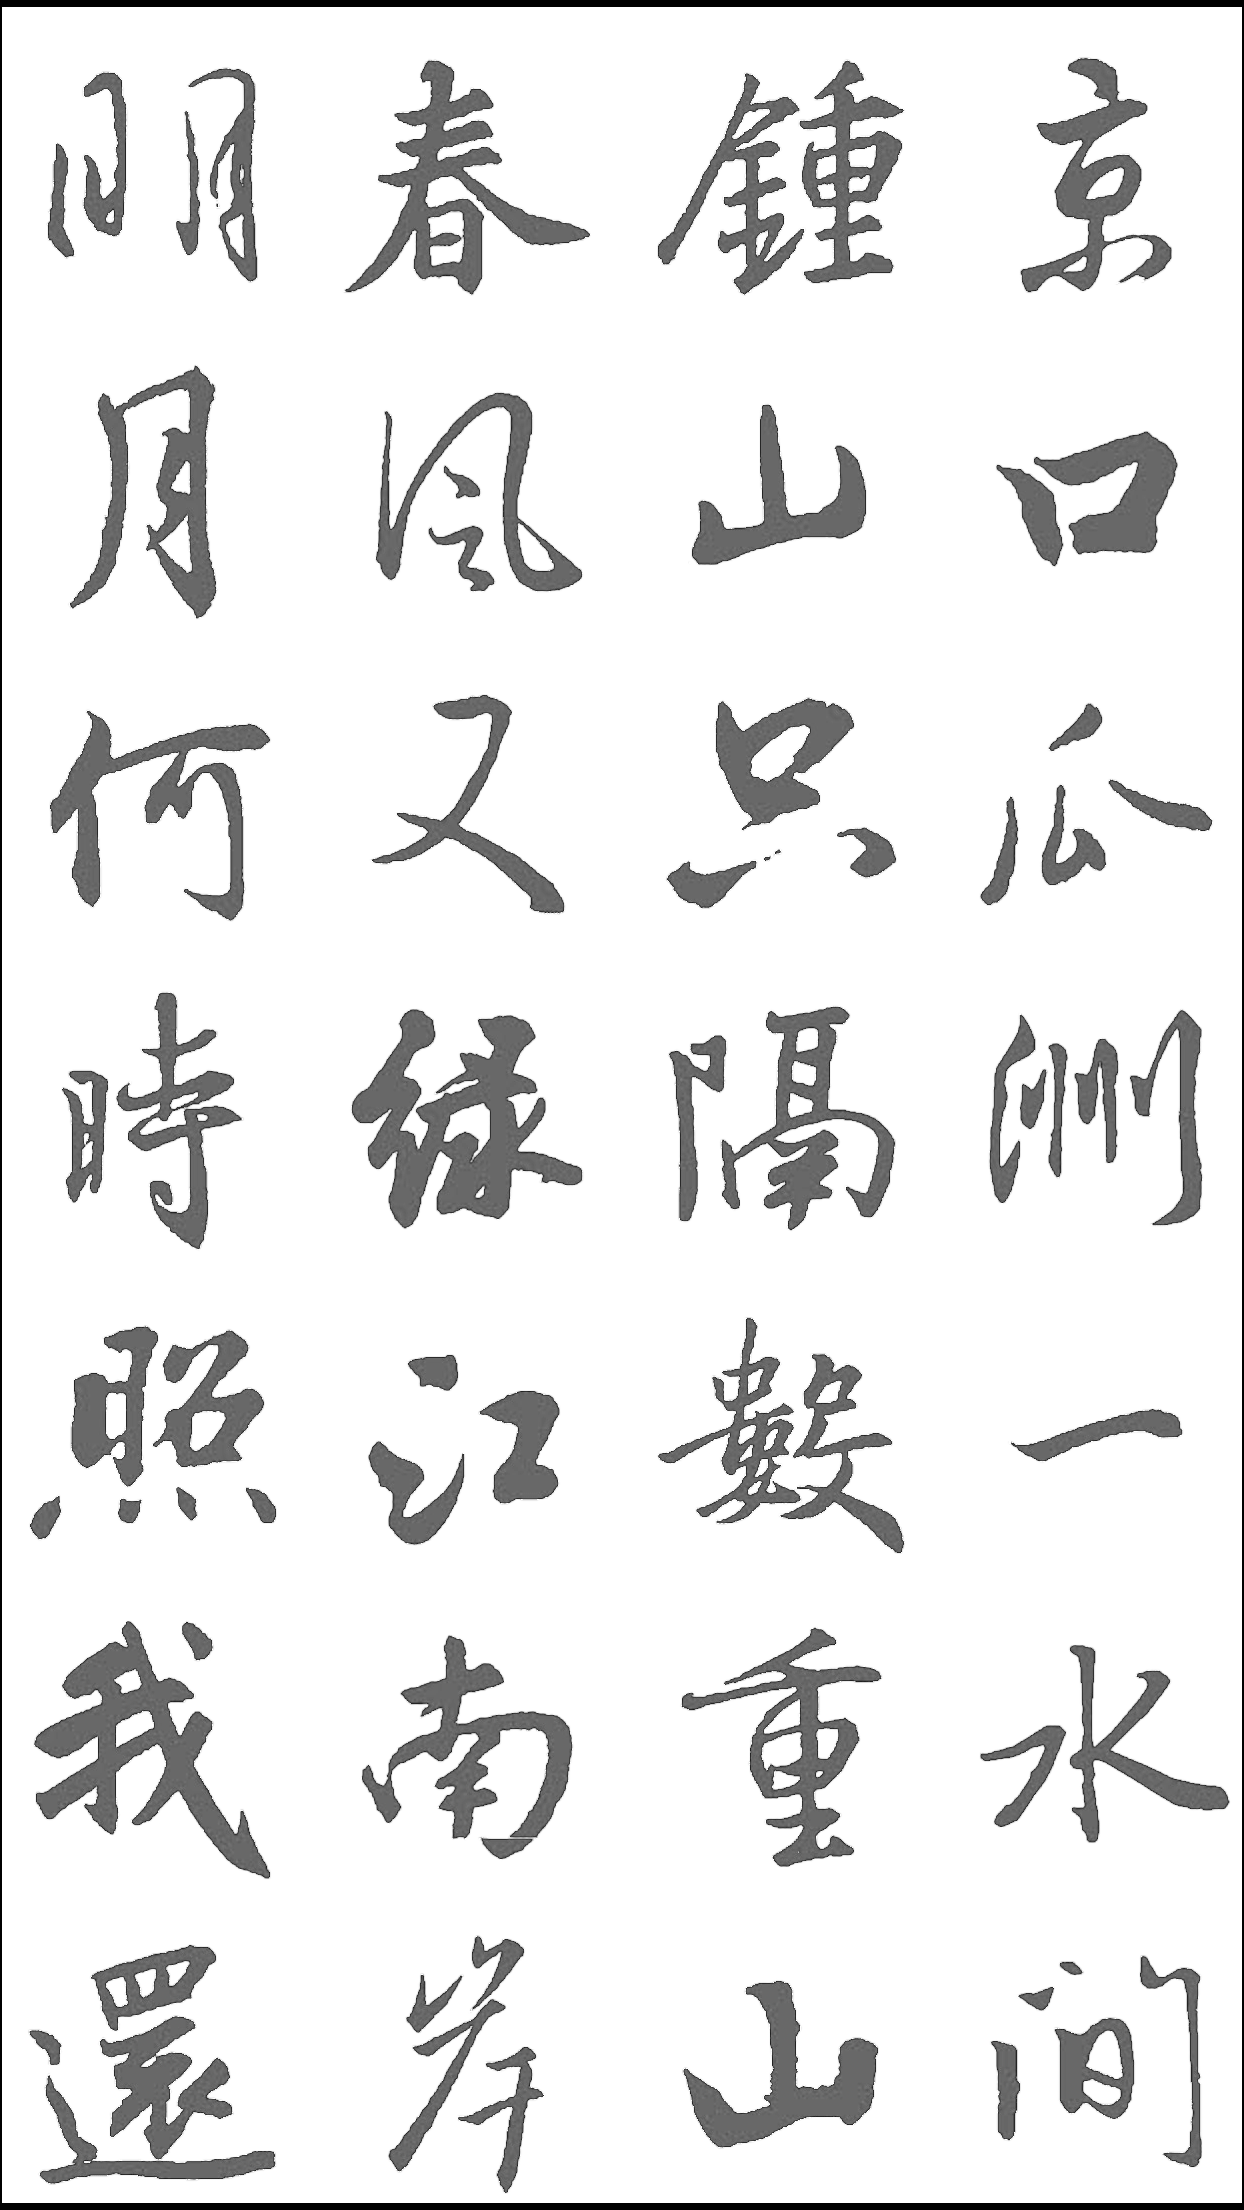 京口瓜洲一水间
鍾山只隔數重山
春风又緑江南岸
明月何時照我還